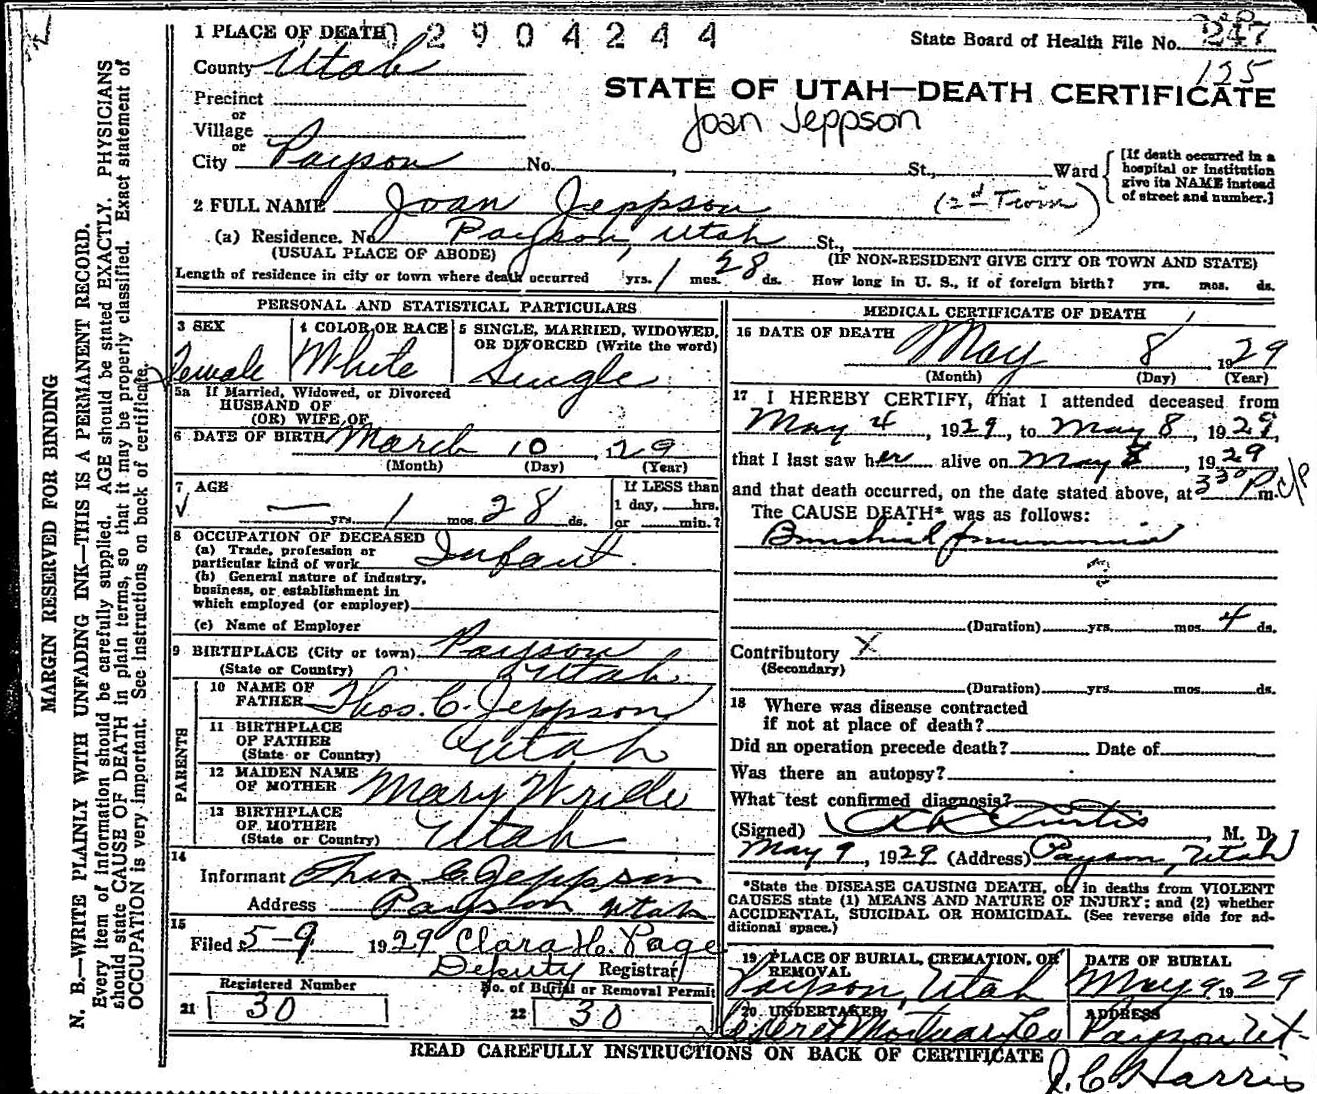 1 PLACE OF DEATH 2904244
State Board of Health File No. 247
125
County Utah
STATE OF UTAH—DEATH CERTIFICATE
Precinct
or
Joan Jeppson
Village
or
City Payson No. , St., Ward
[If death occurred in a
hospital or institution
give its NAME instead
of street and number.]
2 FULL NAME Joan Jeppson (2d Twin)
(a) Residence. No. Payson, Utah St.,
(USUAL PLACE OF ABODE) (IF NON-RESIDENT GIVE CITY OR TOWN AND STATE)
Length of residence in city or town where death occurred yrs. 1 mos. 28 ds. How long in U. S., if of foreign birth? yrs. mos. ds.
PERSONAL AND STATISTICAL PARTICULARS
3 SEX 4 COLOR OR RACE 5 SINGLE, MARRIED, WIDOWED,
OR DIVORCED (Write the word)
Female White Single
5a If Married, Widowed, or Divorced
HUSBAND OF
(OR) WIFE OF
6 DATE OF BIRTH March 10, 129
(Month) (Day) (Year)
7 AGE If LESS than
1 day, hrs.
— yrs. 1 mos. 28 ds. or min.?
8 OCCUPATION OF DECEASED
(a) Trade, profession or
particular kind of work Infant.
(b) General nature of industry,
business, or establishment in
which employed (or employer)
(c) Name of Employer
9 BIRTHPLACE (City or town) Payson
(State or Country) Utah
PARENTS
10 NAME OF
FATHER Thos. C. Jeppson
11 BIRTHPLACE
OF FATHER
(State or Country) Utah
12 MAIDEN NAME
OF MOTHER Mary Wride
13 BIRTHPLACE
OF MOTHER
(State or Country) Utah
14
Informant Thos C Jeppson
Address Payson Utah
15
Filed 5-9 1929 Clara H. Page
Deputy Registrar
Registered Number No. of Burial or Removal Permit
21 30 22 30
MEDICAL CERTIFICATE OF DEATH
16 DATE OF DEATH May 8 1929
(Month) (Day) (Year)
17 I HEREBY CERTIFY, That I attended deceased from
May 4, 1929, to May 8, 1929,
that I last saw her alive on May 8, 1929
and that death occurred, on the date stated above, at 330 P m.
The CAUSE DEATH* was as follows:
Bronchial pneumonia
(Duration) yrs. mos. 4 ds.
Contributory X
(Secondary)
(Duration) yrs. mos. ds.
18 Where was disease contracted
if not at place of death?
Did an operation precede death? Date of
Was there an autopsy?
What test confirmed diagnosis?
(Signed) Curtis, M. D.
May 9, 1929 (Address) Payson, Utah
*State the DISEASE CAUSING DEATH, or in deaths from VIOLENT
CAUSES state (1) MEANS AND NATURE OF INJURY; and (2) whether
ACCIDENTAL, SUICIDAL OR HOMICIDAL. (See reverse side for ad-
ditional space.)
19 PLACE OF BURIAL, CREMATION, OR
REMOVAL DATE OF BURIAL
Payson, Utah May 9, 1929
20 UNDERTAKER ADDRESS
Deseret Mortuary Co Payson Ut-
READ CAREFULLY INSTRUCTIONS ON BACK OF CERTIFICATE
J. C. Harris
MARGIN RESERVED FOR BINDING
N. B.—WRITE PLAINLY WITH UNFADING INK—THIS IS A PERMANENT RECORD.
Every item of information should be carefully supplied. AGE should be stated EXACTLY. PHYSICIANS
should state CAUSE OF DEATH in plain terms, so that it may be properly classified. Exact statement of
OCCUPATION is very important. See instructions on back of certificate.